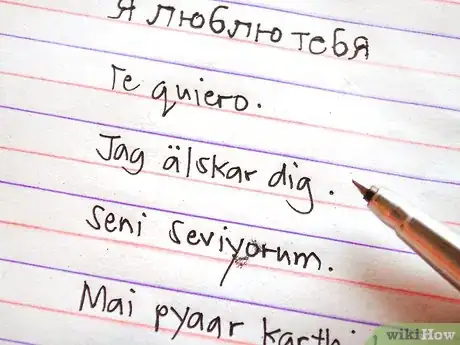 Я люблю тебя
Te quiero.
Jag älskar dig.
seni seviyorum.
Mai pyaar karthi
wikiHow